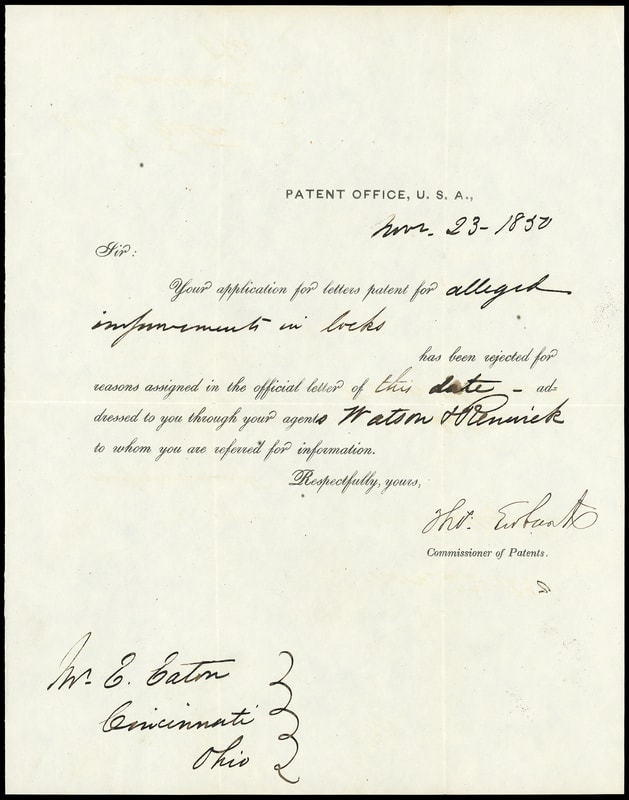 PATENT OFFICE, U. S. A.,
Novr. 23 - 1850
Sir:
Your application for letters patent for alleged
improvements in locks
has been rejected for
reasons assigned in the official letter of this date - ad=
dressed to you through your agents Watson & Renwick
to whom you are referred for information.
Respectfully, yours,
Thos. Ewbank
Commissioner of Patents.
Mr. E. Eaton
Cincinnati
Ohio